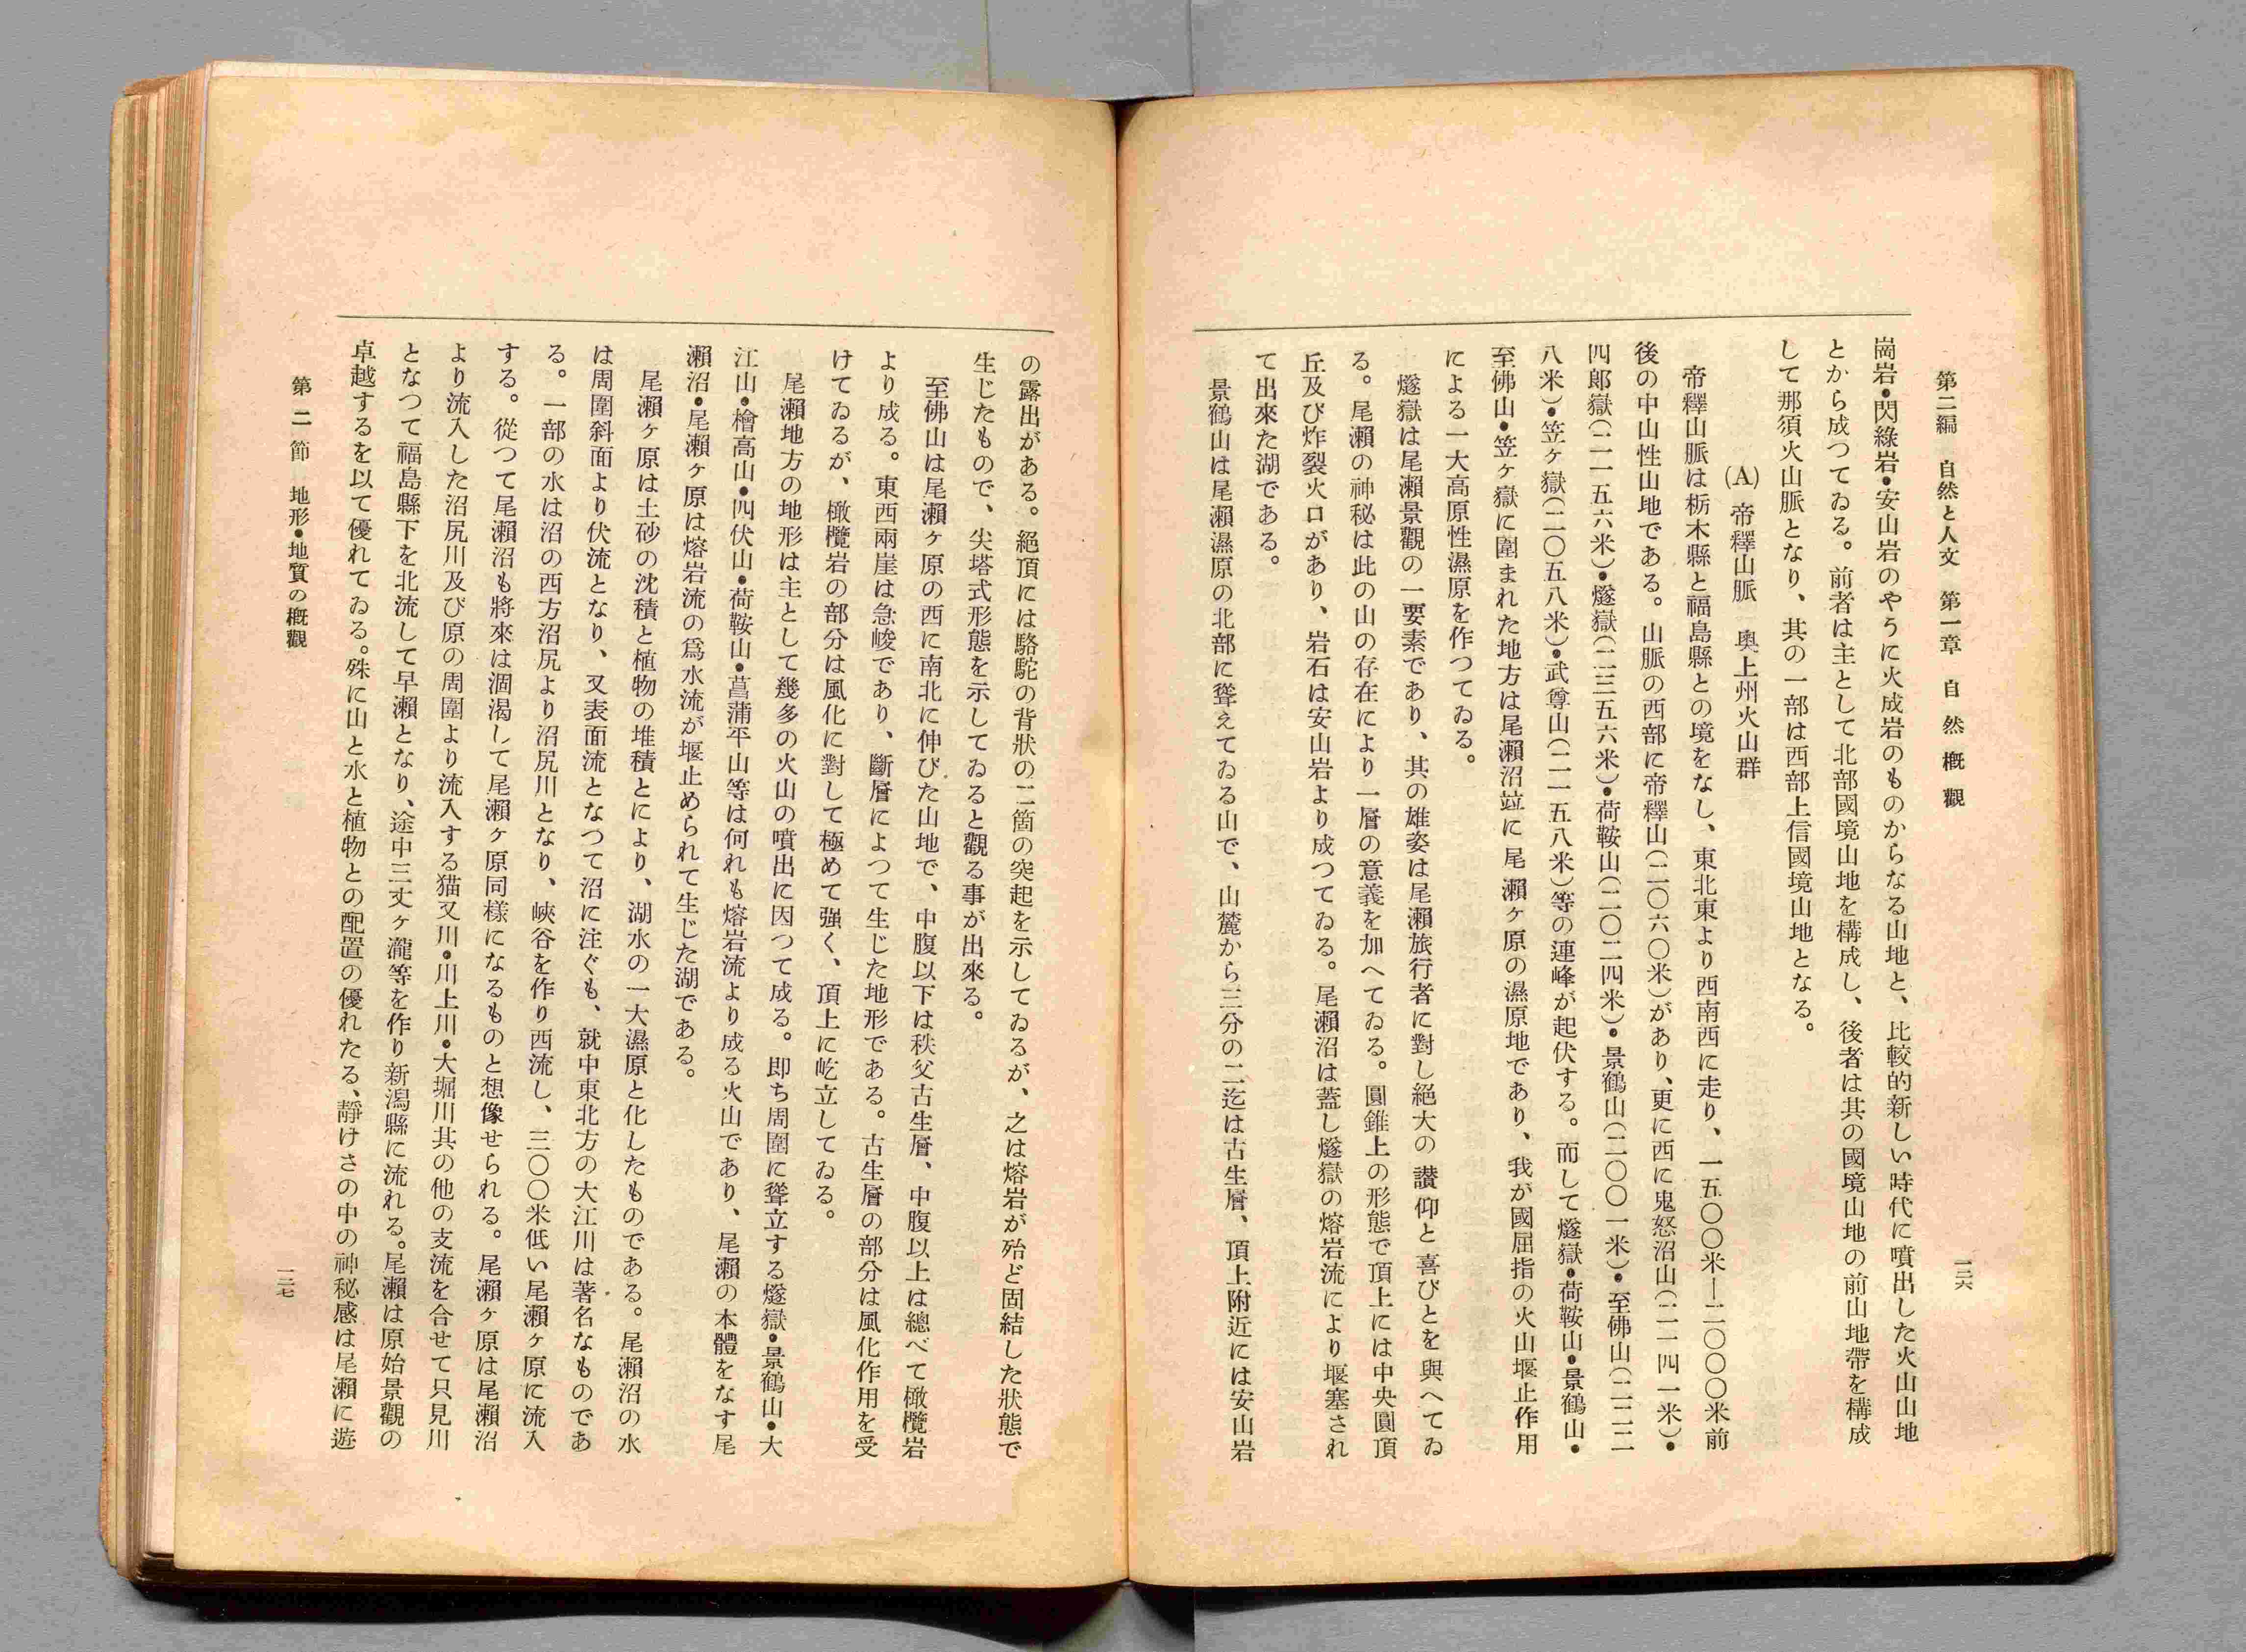 第二編　自然と人文　第一章　自然概觀
一三六
崗岩・閃綠岩・安山岩のやうに火成岩のものからなる山地と、比較的新しい時代に噴出した火山山地
とから成つてゐる。前者は主として北部國境山地を構成し、後者は其の國境山地の前山地帶を構成
して那須火山脈となり、其の一部は西部上信國境山地となる。
(A)　帝釋山脈　奧上州火山群
帝釋山脈は栃木縣と福島縣との境をなし、東北東より西南西に走り、一五〇〇米―二〇〇〇米前
後の中山性山地である。山脈の西部に帝釋山(二〇六〇米)があり、更に西に鬼怒沼山(二一四一米)・
四郎嶽(二一五六米)・燧嶽(二三五六米)・荷鞍山(二〇二四米)・景鶴山(二〇〇一米)・至佛山(二二二
八米)・笠ケ嶽(二〇五八米)・武尊山(二一五八米)等の連峰が起伏する。而して燧嶽・荷鞍山・景鶴山・
至佛山・笠ケ嶽に圍まれた地方は尾瀨沼竝に尾瀨ケ原の濕原地であり、我が國屈指の火山堰止作用
による一大高原性濕原を作つてゐる。
燧嶽は尾瀨景觀の一要素であり、其の雄姿は尾瀨旅行者に對し絕大の讃仰と喜びとを與へてゐ
る。尾瀨の神秘は此の山の存在により一層の意義を加へてゐる。圓錐上の形態で頂上には中央圓頂
丘及び炸裂火口があり、岩石は安山岩より成つてゐる。尾瀨沼は蓋し燧嶽の熔岩流により堰塞され
て出來た湖である。
景鶴山は尾瀨濕原の北部に聳えてゐる山で、山麓から三分の二迄は古生層、頂上附近には安山岩
の露出がある。絕頂には駱駝の背狀の二箇の突起を示してゐるが、之は熔岩が殆ど固結した狀態で
生じたもので、尖塔式形態を示してゐると觀る事が出來る。
至佛山は尾瀨ケ原の西に南北に伸びた山地で、中腹以下は秩父古生層、中腹以上は總べて橄欖岩
より成る。東西兩崖は急峻であり、斷層によつて生じた地形である。古生層の部分は風化作用を受
けてゐるが、橄欖岩の部分は風化に對して極めて强く、頂上に屹立してゐる。
尾瀨地方の地形は主として幾多の火山の噴出に因つて成る。卽ち周圍に聳立する燧嶽・景鶴山・大
江山・檜高山・四伏山・荷鞍山・菖蒲平山等は何れも熔岩流より成る火山であり、尾瀨の本體をなす尾
瀨沼・尾瀨ケ原は熔岩流の爲水流が堰止められて生じた湖である。
尾瀨ケ原は土砂の沈積と植物の堆積とにより、湖水の一大濕原と化したものである。尾瀨沼の水
は周圍斜面より伏流となり、又表面流となつて沼に注ぐも、就中東北方の大江川は著名なものであ
る。一部の水は沼の西方沼尻より沼尻川となり、峽谷を作り西流し、三〇〇米低い尾瀨ケ原に流入
する。從つて尾瀨沼も將來は涸渴して尾瀨ケ原同樣になるものと想像せられる。尾瀨ケ原は尾瀨沼
より流入した沼尻川及び原の周圍より流入する猫又川・川上川・大堀川其の他の支流を合せて只見川
となつて福島縣下を北流して早瀨となり、途中三丈ケ瀧等を作り新潟縣に流れる。尾瀨は原始景觀の
卓越するを以て優れてゐる。殊に山と水と植物との配置の優れたる、靜けさの中の神秘感は尾瀨に遊
第二節　地形・地質の概觀
一三七